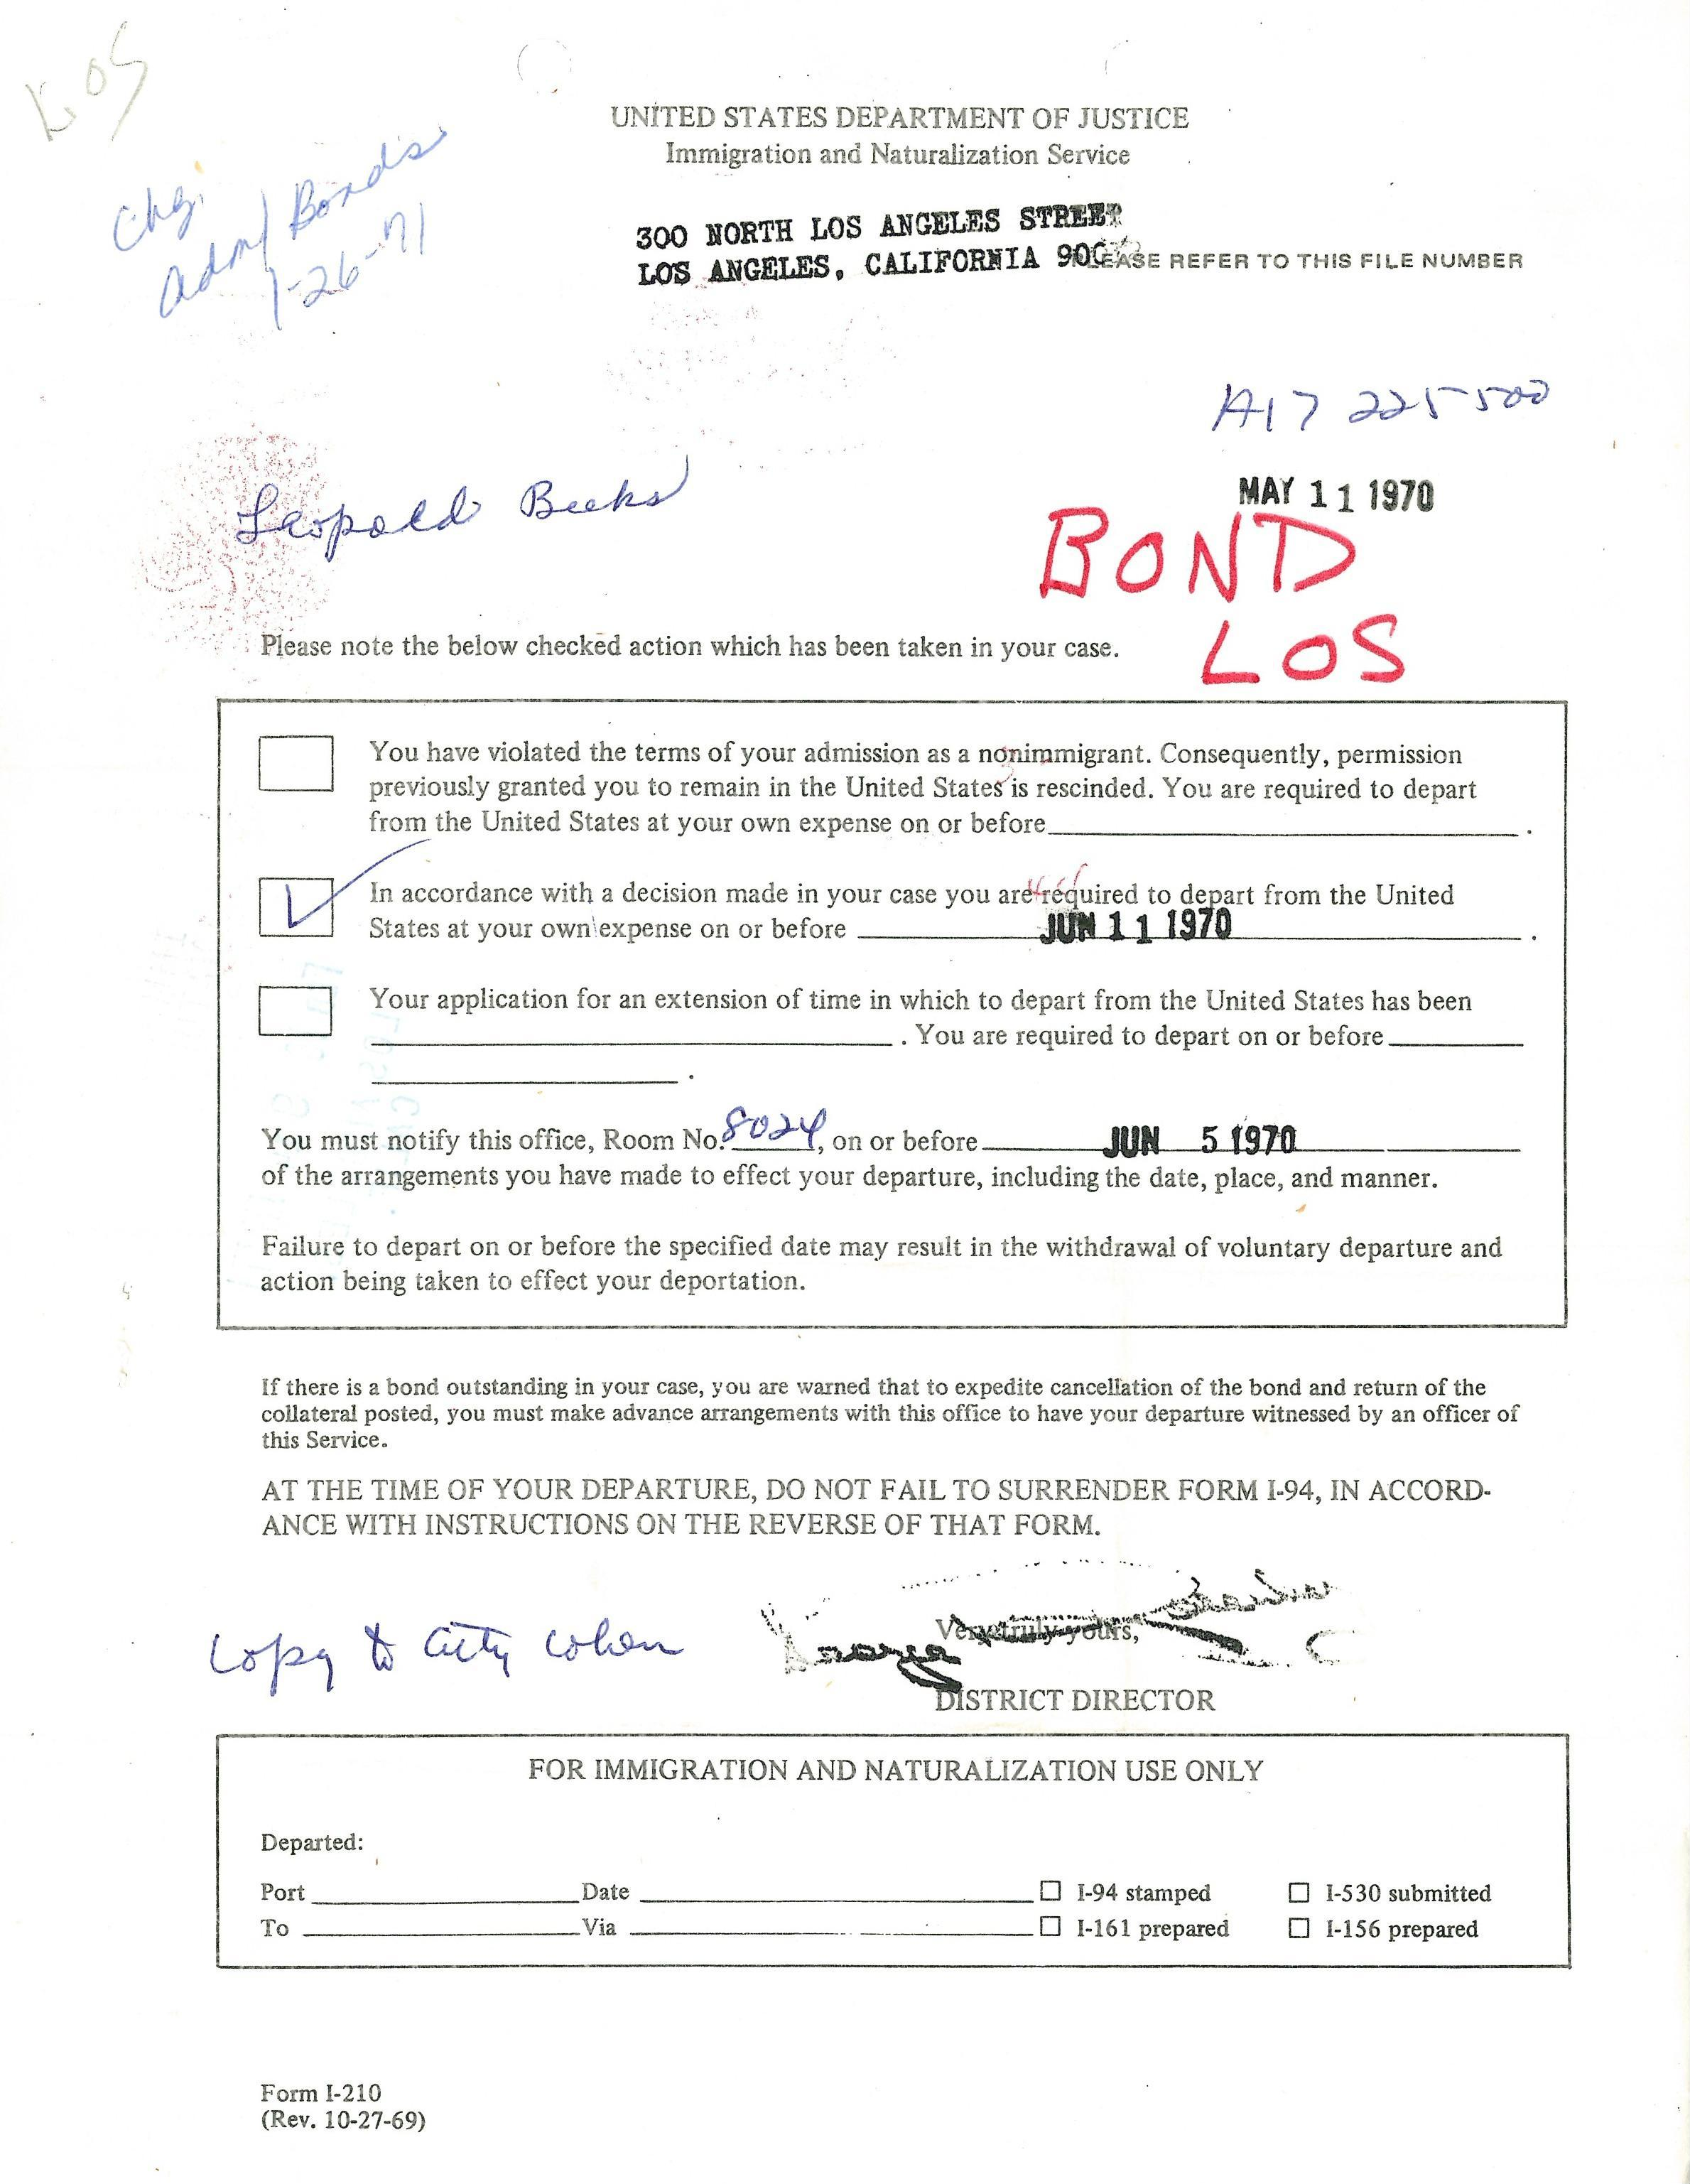 LOS
Chg.
Adm/Bonds
1-26-71
UNITED STATES DEPARTMENT OF JUSTICE
Immigration and Naturalization Service
300 NORTH LOS ANGELES STREET
LOS ANGELES, CALIFORNIA 900
EASE REFER TO THIS FILE NUMBER
A17 225 500
MAY 11 1970
Leopold Beeks
BOND
LOS
Please note the below checked action which has been taken in your case.
You have violated the terms of your admission as a nonimmigrant. Consequently, permission
previously granted you to remain in the United States is rescinded. You are required to depart
from the United States at your own expense on or before .
In accordance with a decision made in your case you are required to depart from the United
States at your own expense on or before JUN 11 1970 .
Your application for an extension of time in which to depart from the United States has been
. You are required to depart on or before
.
You must notify this office, Room No. 8024, on or before JUN 5 1970
of the arrangements you have made to effect your departure, including the date, place, and manner.
Failure to depart on or before the specified date may result in the withdrawal of voluntary departure and
action being taken to effect your deportation.
If there is a bond outstanding in your case, you are warned that to expedite cancellation of the bond and return of the
collateral posted, you must make advance arrangements with this office to have your departure witnessed by an officer of
this Service.
AT THE TIME OF YOUR DEPARTURE, DO NOT FAIL TO SURRENDER FORM I-94, IN ACCORD-
ANCE WITH INSTRUCTIONS ON THE REVERSE OF THAT FORM.
Copy to Atty Cohen
Very truly yours,
DISTRICT DIRECTOR
FOR IMMIGRATION AND NATURALIZATION USE ONLY
Departed:
Port Date □ I-94 stamped □ I-530 submitted
To Via □ I-161 prepared □ I-156 prepared
Form I-210
(Rev. 10-27-69)